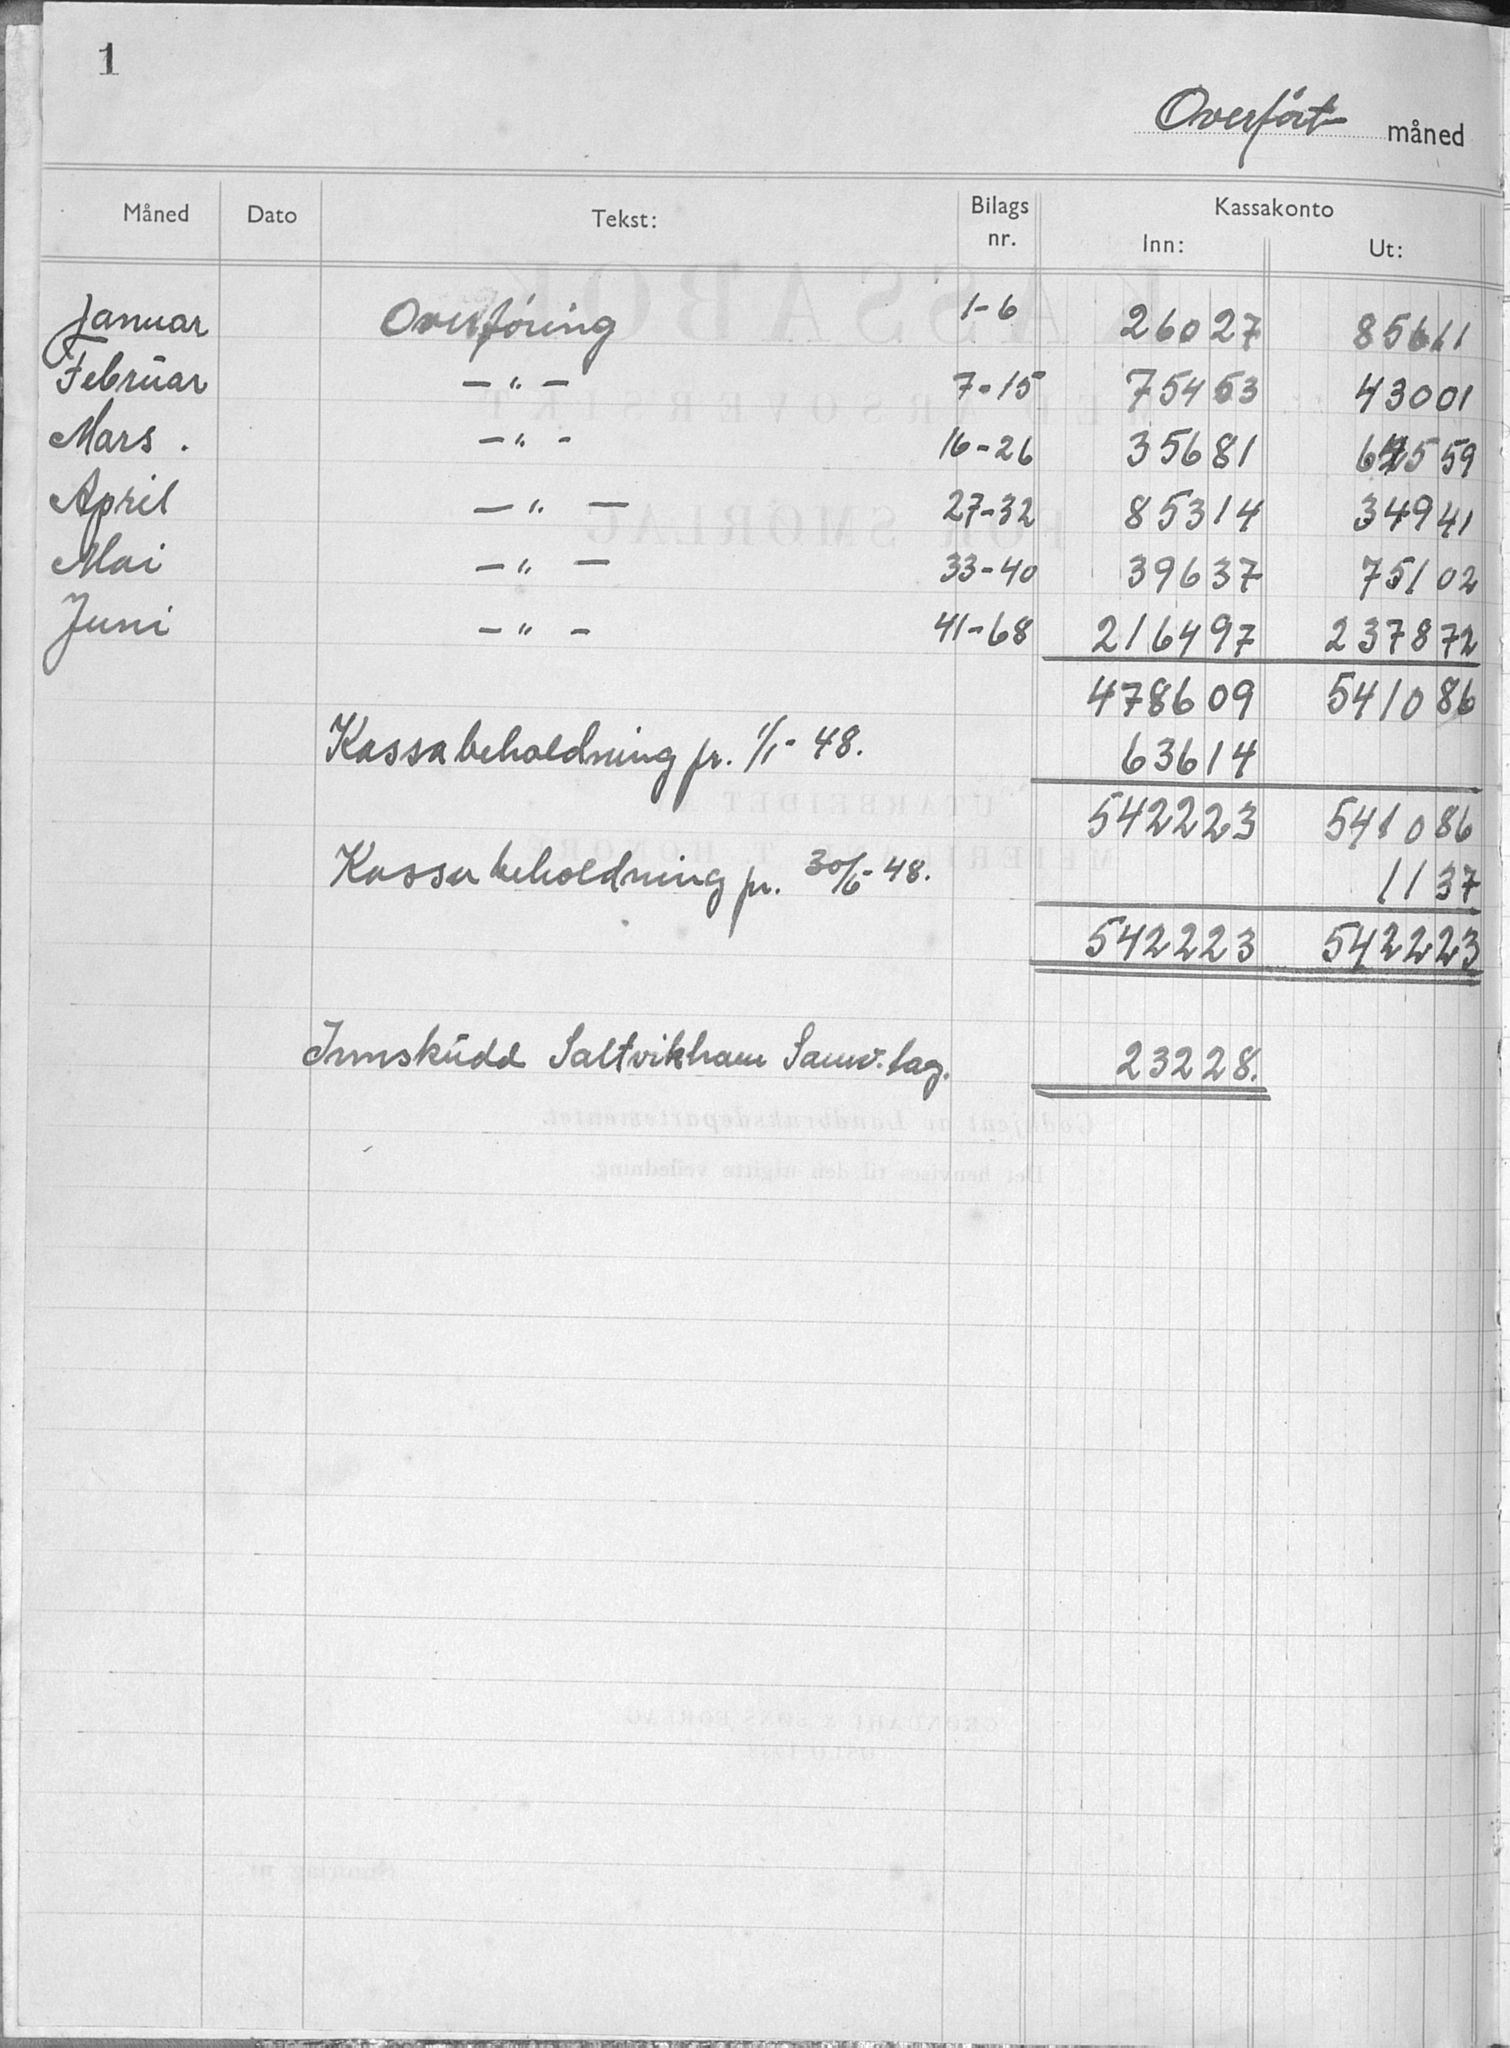 1
Overført måned
Måned Dato Tekst: Bilags nr. Kassakonto
Inn: Ut:
Januar Overføring 1-6 26027 85611
Februar -"- 7-15 75453 43001
Mars. -"- 16-26 35681 64559
April -"- 27-32 85314 34941
Mai -"- 33-40 39637 75102
Juni -"- 41-68 216497 237872
478609 541086
Kassabeholdning pr. 1/1-48. 63614
542223 541086
Kassabeholdning pr. 30/6-48. 1137
542223 542223
Innskudd Samv.lag. 23228.